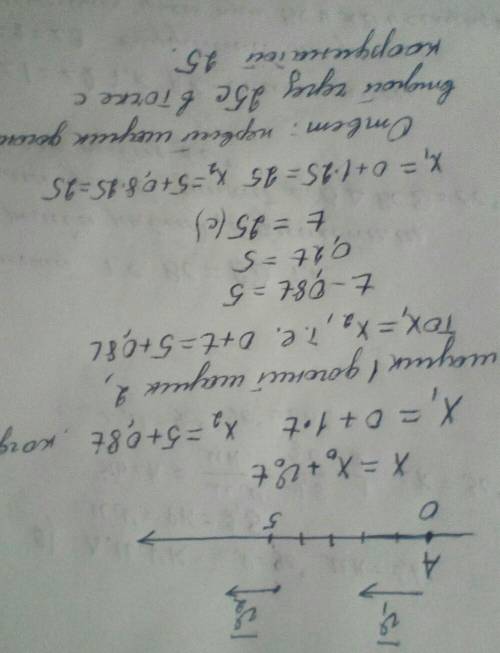 v₁ v₂
A
0 5
x = x₀ + v₀t
x₁ = 0 + 1·t x₂ = 5 + 0,8t когд
шарик 1 догонит шарик 2,
то x₁ = x₂, т.е. 0 + t = 5 + 0,8t
t - 0,8t = 5
0,2t = 5
t = 25 (с)
x₁ = 0 + 1·25 = 25 x₂ = 5 + 0,8·25 = 25
Ответ: первый шарик догон
второй через 25с в точке с
координатой 25.